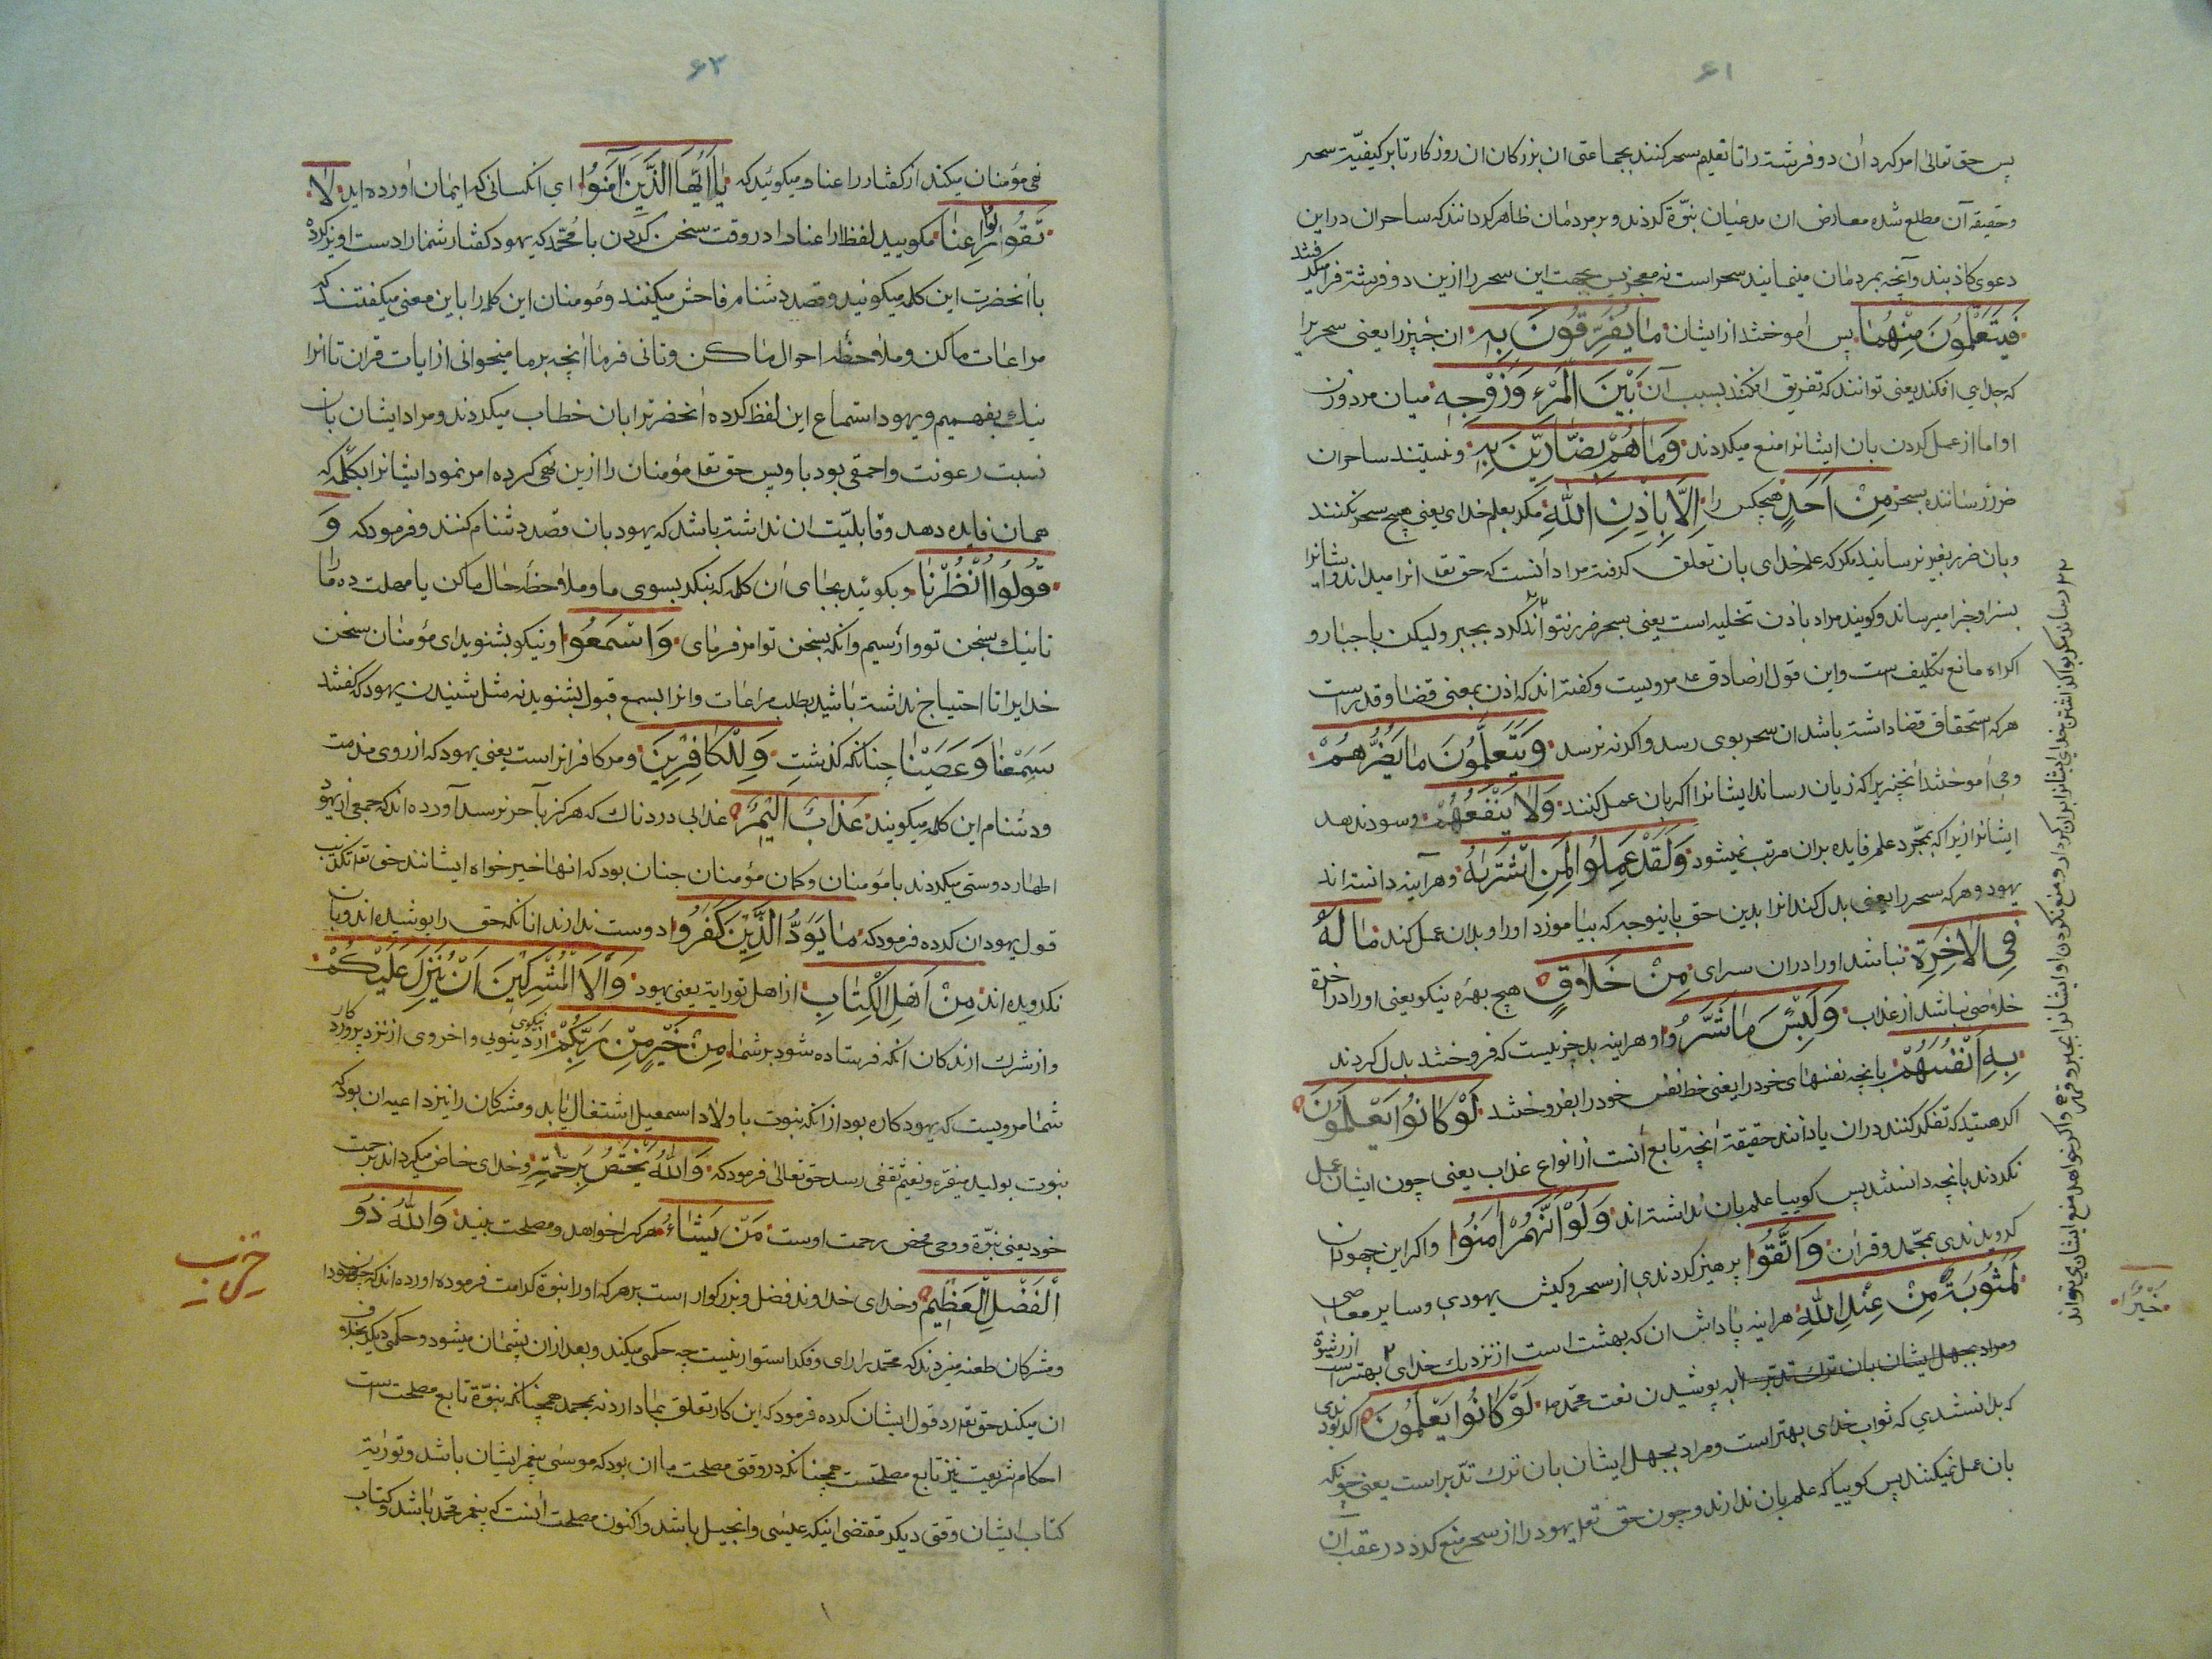 ۶۱
پس حق تعالی امر کرد ان دو فرشته را تا تعلیم سحر کنند بجماعتی ان بزرکان ان روزکار تا بر کیفیّت سحر
و حقیقه آن مطلع شده معارض ان مدعیان نبوّة کردند و بر مردمان ظاهر کردانند که ساحران در این
دعوی کاذبند و آنچه بمردمان مینمایند سحر است نه معجز پس بجهت این سحر را ازین دو فرشته فرا میکرفتند
فَیَتَعَلَّمُونَ مِنْهُمٰا پس اموختند از ایشان مٰا یُفَرِّقُونَ بِهِ ان چیز را یعنی سحریرا
که جدای افکند یعنی توانند که تفریق افکنند بسبب آن بَیْنَ الْمَرْءِ وَ زَوْجِهِ میان مرد و زن
او اما از عمل کردن بان ایشانرا منع میکردند وَ مٰا هُمْ بِضٰارّینَ بِهِ و نیستند ساحران
ضرر رساننده بسحر مِنْ اَحَدٍ هیچکس را اِلّٰا بِاِذْنِ اللّٰهِ مکر بعلم خدای یعنی هیچ سحر نکنند
و بان ضرر بغیر نرسانند مکر که علم خدای بان تعلق کرفته مراد آنست که حق تعا انرا میداند و ایشانرا
بسزا و جزا میرساند و کویند مراد باذن تخلیه است یعنی بسحر ضرر نتواند کرد بجبر ولیکن باجبار و
اکراه مانع تکلیف است و این قول از صادق ع مرویست و کفته اند که اذن بمعنی قضا و قدر است
هر که استحقاق قضا داشته باشد ان سحر بوی رسد و اکر نه نرسد وَ یَتَعَلَّمُونَ مٰا یَضُرُّهُمْ
و می اموختند انچیزیرا که زیان رساند ایشانرا اکر بان عمل کنند وَ لٰا یَنْفَعُهُمْ و سود ندهد
ایشانرا زیرا که بمجّرد علم فایده بران مرتب نمیشود وَ لَقَدْ عَلِمُوا لَمَنِ اشْتَرٰیهُ و هر آینه دانسته اند
یهود و هر که سحر را یعنی بدل کند انرا بدین حق باینوجه که بیاموزد او را و بدان عمل کند مٰا لَهُ
فِی الْاٰخِرَةِ نباشد او را در ان سرای مِنْ خَلٰاقٍ هیچ بهرهٔ نیکو یعنی او را در اخرة
خلاصی نباشد از عذاب وَ لَبِئْسَ مٰا شَرَوْا و هر اینه بد چیزیست که فروختند بدل کردند
بِهِ اَنْفُسَهُمْ بانچه نفسهای خود را یعنی خط نفس خود را بفروختند لَوْ کٰانُوا یَعْلَمُونَ
اکر هستید که تفکر کنند در ان یا دانند حقیقة انچه تابع آنست از انواع عذاب یعنی چون ایشان عمل
نکردند بانچه دانستند پس کوییا علم بان نداشته اند وَ لَوْ اَنَّهُمْ اٰمَنُوا و اکر این جهودان
کرویدندی بمحّمد و قران وَ اتَّقَوْا پرهیز کردندی از سحر و کیش یهودی و سایر معاصی
لَمَثُوبَةٌ مِنْ عِنْدِ اللّٰهِ هر اینه پاداش ان که بهشت است از نزدیك خدای بهتر است از رشوة
و مراد بجهل ایشان بان ترك تدبّر به پوشیدن نعت محمّد ص لَوْ کٰانُوا یَعْلَمُونَ اکر بودندی
که بدانستندی که ثواب خدای بهتر است و مراد بجهل ایشان بان ترك تدّبر است یعنی چونکه
بان عمل نمیکنند پس کوییا که علم بان ندارند و چون حق تعا یهود را از سحر منع کرد در عقب ان
خَیْرٌ
۶۲
نهی مؤمنان میکند از کفتار راعنا و میکوئید که یٰا اَیُّهَا الَّذینَ اٰمَنُوا ای انکسانی که ایمان اورده اید لٰا
تَقُولُوا رٰاعِنٰا مکویید لفظ راعنا را در وقت سخن کردن با محّمد که یهود کفتار شمار ا دست اویز کرده
با انحضرت این کلمه میکویند و قصد دشنام فاحش میکنند و مومنان این کلمه را باین معنی میکفتند که
مراعات ما کن و ملاحظه احوال ما کن و تانی فرما انچه بر ما میخوانی از ایات قران تا انرا
نیك بفهمیم و یهود استماع این لفظ کرده انحضرترا بان خطاب میکردند و مراد ایشان بان
نسبت رعونت و احمقی بود باو پس حق تعا مؤمنان را ازین نهی کرده امر نمود ایشانرا بکلّمه که
همان فایده دهد و قابلیّت ان نداشته باشد که یهود بان قصد دشنام کنند و فرمود که وَ
قُولُوا انْظُرْنٰا و بکوئید بجای ان کلمه که بنکر بسوی ما و ملاحظه حال ما کن یا مهلت ده ما را
تا نیك بسخن تو وا رسیم و انکه بسخن تو امر فرمای وَ اسْمَعُوا و نیکو بشنوید ای مؤمنان سخن
خدایرا تا احتیاج نداشته باشید بطلب مراعات و انرا بسمع قبول بشنوید نه مثل شنیدن یهود که کفتند
سَمِعْنٰا وَ عَصَیْنٰا چنانکه کذشت وَ لِلْکٰافِرینَ و مر کافرانراست یعنی یهود که از روی مذمت
و دشنام این کلمه میکویند عَذٰابٌ اَلیمٌ عذابی دردناك که هرکز بآخر نرسد آورده اند که جمعی از یهود
اظهار دوستی میکردند با مؤمنان و کمان مؤمنان چنان بود که انها خیر خواه ایشانند حق تعا تکذیب
قول یهودان کرده فرمود که مٰا یَوَدُّ الَّذینَ کَفَرُوا دوست ندارند انانکه حق را پوشیده اند و بان
نکرویده اند مِنْ اَهْلِ الْکِتٰابِ از اهل توراية یعنی یهود وَ لَا الْمُشْرِکینَ اَنْ یُنَزَّلَ عَلَیْکُمْ
و از شرك ارندکان انکه فرستاده شود بر شما مِنْ خَیْرٍ مِنْ رَبِّکُمْ از نیکوی دنیوی و اخروی از نزد پروردکار
شما مرویست که یهود کاره بود از انکه نبوت باولاد اسمعیل اشتغال یابد و مشرکان را نیز داعیه ان بود که
نبوت بولید مغیره و نعیم ثقفی رسد حق تعالی فرمود که وَ اللّٰهُ یَخْتَصُّ بِرَحْمَتِهِ و خدای خاص میکرداند برحمت
خود یعنی نبوّة و وحی محض رحمت اوست مَنْ یَشٰاءُ هر کرا خواهد و مصلحت بیند وَ اللّٰهُ ذُو
الْفَضْلِ الْعَظیمِ و خدای خداوند فضل و بزرکوار است بر هر که او را نبوّة کرامت فرموده اورده اند که جهودان
و مشرکان طعنه میزدند که محّمد را رای و فکر استوار نیست چه حکمی میکند و بعد از ان پشیمان میشود و حکمی دیکر بخلاف
ان میکند حق تعا رد قول ایشان کرده فرمود که این کار تعلق بما دارد نه بمحمد همچنانکه نبوّة تابع مصلحت است
احکام شریعت نیز تابع مصلحتست همچنانکه در وقتی مصلحت ما ان بود که موسی پیغمبر ایشان باشد و تورایة
کتاب ایشان وقتی دیکر مقتضی اینکه عیسی و انجیل باشد و اکنون مصلحت انست که پیغمبر محّمد باشد و کتاب
حزب